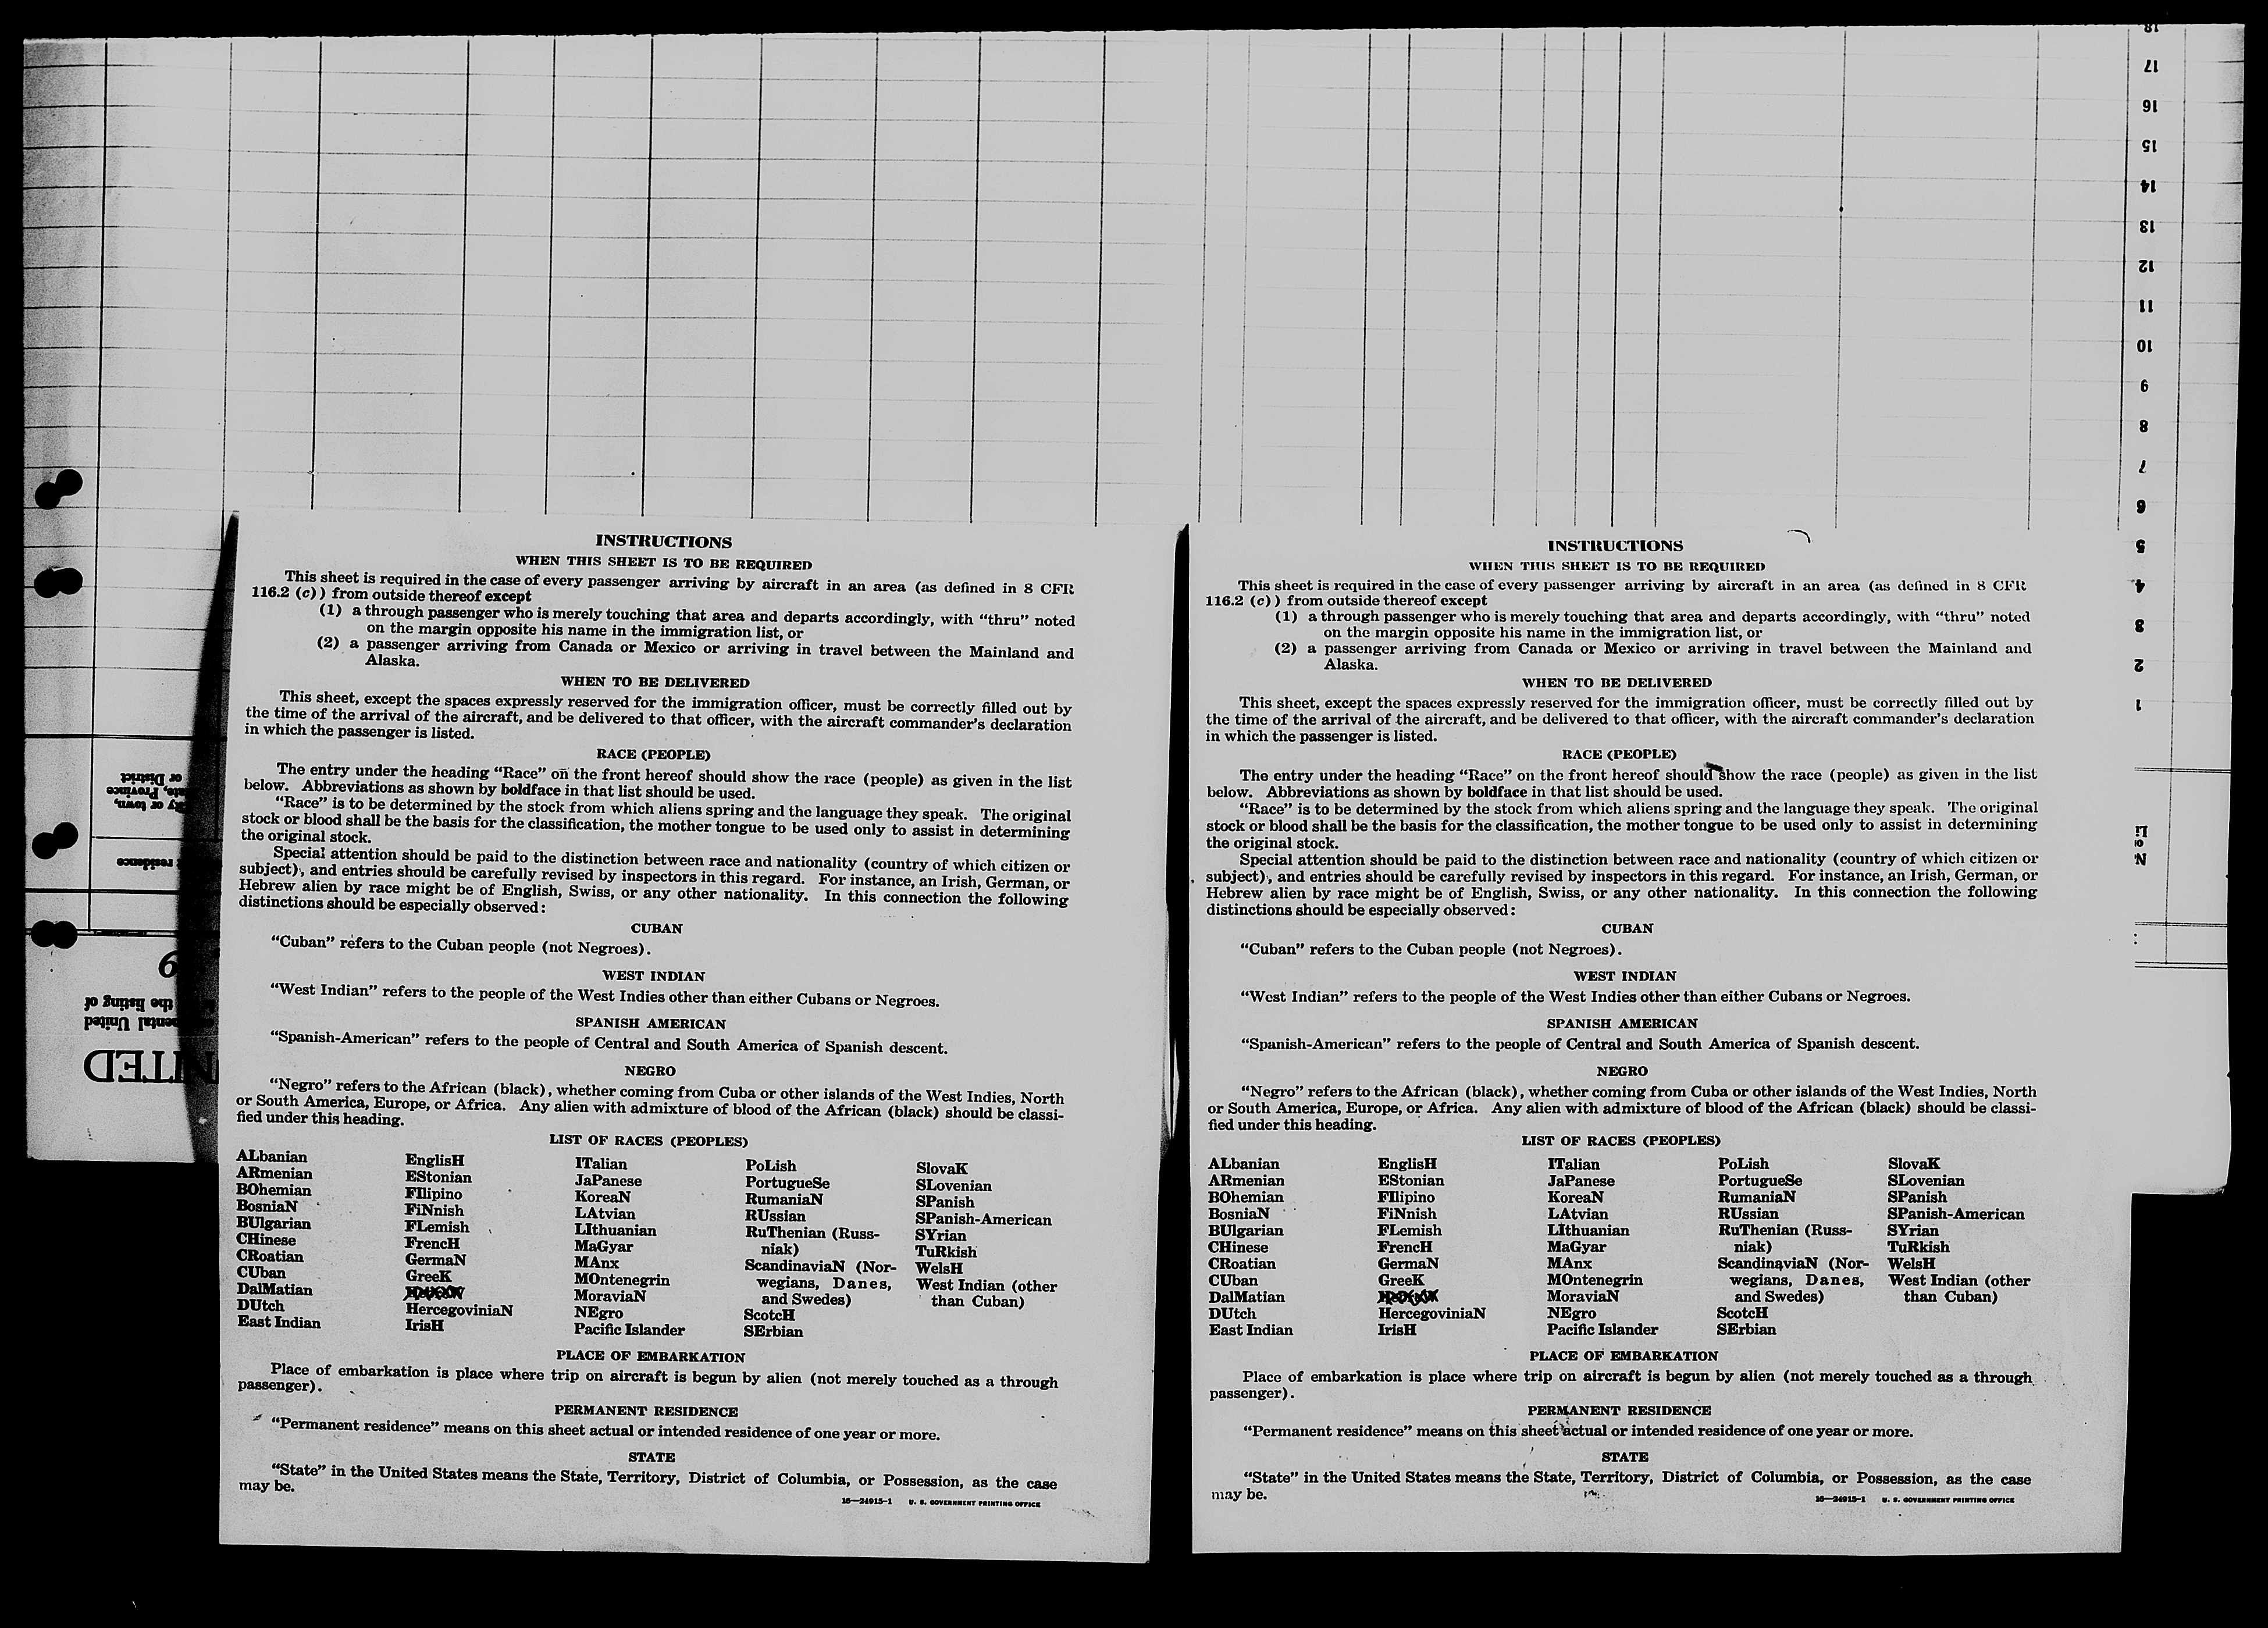 INSTRUCTIONS
WHEN THIS SHEET IS TO BE REQUIRED
This sheet is required in the case of every passenger arriving by aircraft in an area (as defined in 8 CFR
116.2 (c)) from outside thereof except
(1) a through passenger who is merely touching that area and departs accordingly, with “thru” noted
on the margin opposite his name in the immigration list, or
(2) a passenger arriving from Canada or Mexico or arriving in travel between the Mainland and
Alaska.
WHEN TO BE DELIVERED
This sheet, except the spaces expressly reserved for the immigration officer, must be correctly filled out by
the time of the arrival of the aircraft, and be delivered to that officer, with the aircraft commander’s declaration
in which the passenger is listed.
RACE (PEOPLE)
The entry under the heading “Race” on the front hereof should show the race (people) as given in the list
below. Abbreviations as shown by boldface in that list should be used.
“Race” is to be determined by the stock from which aliens spring and the language they speak. The original
stock or blood shall be the basis for the classification, the mother tongue to be used only to assist in determining
the original stock.
Special attention should be paid to the distinction between race and nationality (country of which citizen or
subject), and entries should be carefully revised by inspectors in this regard. For instance, an Irish, German, or
Hebrew alien by race might be of English, Swiss, or any other nationality. In this connection the following
distinctions should be especially observed:
CUBAN
“Cuban” refers to the Cuban people (not Negroes).
WEST INDIAN
“West Indian” refers to the people of the West Indies other than either Cubans or Negroes.
SPANISH AMERICAN
“Spanish-American” refers to the people of Central and South America of Spanish descent.
NEGRO
“Negro” refers to the African (black), whether coming from Cuba or other islands of the West Indies, North
or South America, Europe, or Africa. Any alien with admixture of blood of the African (black) should be classi-
fied under this heading.
LIST OF RACES (PEOPLES)
ALbanian
ARmenian
BOhemian
BosniaN
BUlgarian
CHinese
CRoatian
CUban
DalMatian
DUtch
East Indian
EnglisH
EStonian
FIlipino
FiNnish
FLemish
FrencH
GermaN
GreeK
HercegoviniaN
IrisH
ITalian
JaPanese
KoreaN
LAtvian
LIthuanian
MaGyar
MAnx
MOntenegrin
MoraviaN
NEgro
Pacific Islander
PoLish
PortugueSe
RumaniaN
RUssian
RuThenian (Russ-
niak)
ScandinaviaN (Nor-
wegians, Danes,
and Swedes)
ScotcH
SErbian
SlovaK
SLovenian
SPanish
SPanish-American
SYrian
TuRkish
WelsH
West Indian (other
than Cuban)
PLACE OF EMBARKATION
Place of embarkation is place where trip on aircraft is begun by alien (not merely touched as a through
passenger).
PERMANENT RESIDENCE
“Permanent residence” means on this sheet actual or intended residence of one year or more.
STATE
“State” in the United States means the State, Territory, District of Columbia, or Possession, as the case
may be.
16—24915-1 U. S. GOVERNMENT PRINTING OFFICE
INSTRUCTIONS
WHEN THIS SHEET IS TO BE REQUIRED
This sheet is required in the case of every passenger arriving by aircraft in an area (as defined in 8 CFR
116.2 (c)) from outside thereof except
(1) a through passenger who is merely touching that area and departs accordingly, with “thru” noted
on the margin opposite his name in the immigration list, or
(2) a passenger arriving from Canada or Mexico or arriving in travel between the Mainland and
Alaska.
WHEN TO BE DELIVERED
This sheet, except the spaces expressly reserved for the immigration officer, must be correctly filled out by
the time of the arrival of the aircraft, and be delivered to that officer, with the aircraft commander’s declaration
in which the passenger is listed.
RACE (PEOPLE)
The entry under the heading “Race” on the front hereof should show the race (people) as given in the list
below. Abbreviations as shown by boldface in that list should be used.
“Race” is to be determined by the stock from which aliens spring and the language they speak. The original
stock or blood shall be the basis for the classification, the mother tongue to be used only to assist in determining
the original stock.
Special attention should be paid to the distinction between race and nationality (country of which citizen or
subject), and entries should be carefully revised by inspectors in this regard. For instance, an Irish, German, or
Hebrew alien by race might be of English, Swiss, or any other nationality. In this connection the following
distinctions should be especially observed:
CUBAN
“Cuban” refers to the Cuban people (not Negroes).
WEST INDIAN
“West Indian” refers to the people of the West Indies other than either Cubans or Negroes.
SPANISH AMERICAN
“Spanish-American” refers to the people of Central and South America of Spanish descent.
NEGRO
“Negro” refers to the African (black), whether coming from Cuba or other islands of the West Indies, North
or South America, Europe, or Africa. Any alien with admixture of blood of the African (black) should be classi-
fied under this heading.
LIST OF RACES (PEOPLES)
ALbanian
ARmenian
BOhemian
BosniaN
BUlgarian
CHinese
CRoatian
CUban
DalMatian
DUtch
East Indian
EnglisH
EStonian
FIlipino
FiNnish
FLemish
FrencH
GermaN
GreeK
HercegoviniaN
IrisH
ITalian
JaPanese
KoreaN
LAtvian
LIthuanian
MaGyar
MAnx
MOntenegrin
MoraviaN
NEgro
Pacific Islander
PoLish
PortugueSe
RumaniaN
RUssian
RuThenian (Russ-
niak)
ScandinaviaN (Nor-
wegians, Danes,
and Swedes)
ScotcH
SErbian
SlovaK
SLovenian
SPanish
SPanish-American
SYrian
TuRkish
WelsH
West Indian (other
than Cuban)
PLACE OF EMBARKATION
Place of embarkation is place where trip on aircraft is begun by alien (not merely touched as a through
passenger).
PERMANENT RESIDENCE
“Permanent residence” means on this sheet actual or intended residence of one year or more.
STATE
“State” in the United States means the State, Territory, District of Columbia, or Possession, as the case
may be.
16—24915-1 U. S. GOVERNMENT PRINTING OFFICE
18
17
16
15
14
13
12
11
10
9
8
7
6
5
4
3
2
1
or District
City or town,
residence
the listing of
United